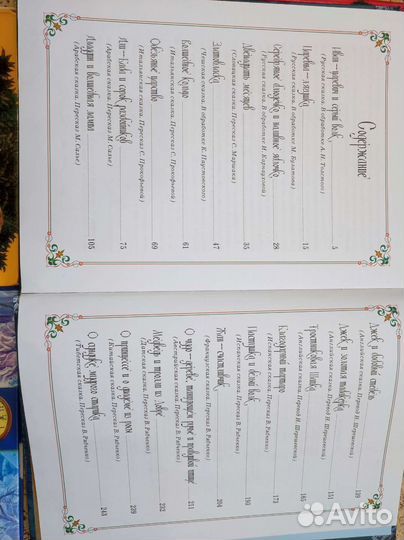 Содержание
Иван-царевич и серый волк
(Русская сказка. В обработке А. Н. Толстого) 5
Царевна-лягушка
(Русская сказка. В обработке М. Булатова) 15
Серебряное блюдечко и наливное яблочко
(Русская сказка. В обработке И. Карнауховой) 28
Двенадцать месяцев
(Словацкая сказка. Пересказ С. Маршака) 35
Златовласка
(Чешская сказка. В обработке К. Паустовского) 47
Волшебное кольцо
(Итальянская сказка. Пересказ С. Прокофьевой) 61
Одежонное царство
(Итальянская сказка. Пересказ С. Прокофьевой) 69
Али-Баба и сорок разбойников
(Арабская сказка. Пересказ М. Салье) 75
Аладдин и волшебная лампа
(Арабская сказка. Пересказ М. Салье) 105
Джек и бобовый стебель
(Английская сказка. Перевод Н. Шерешевской) 139
Джек и золотая табакерка
(Английская сказка. Перевод Н. Шерешевской) 151
Тростниковая Шапка
(Английская сказка. Перевод Н. Шерешевской) 165
Благодарный
(Испанская сказка. Пересказ В. Радченко) 173
Пастушка и белый волк
(Испанская сказка. Пересказ В. Радченко) 190
Жан-счастливчик
(Французская сказка. Пересказ В. Радченко) 204
О чудо-дереве, танцующем ручье и правдивой птице
(Австрийская сказка. Пересказ В. Радченко) 211
Медведь и тролли из Довре
(Датская сказка. Пересказ В. Радченко) 232
О принцессе и о диадеме из росы
(Китайская сказка. Пересказ В. Радченко) 239
О сундуке мудрого старика
(Тибетская сказка. Пересказ В. Радченко) 243
Avito